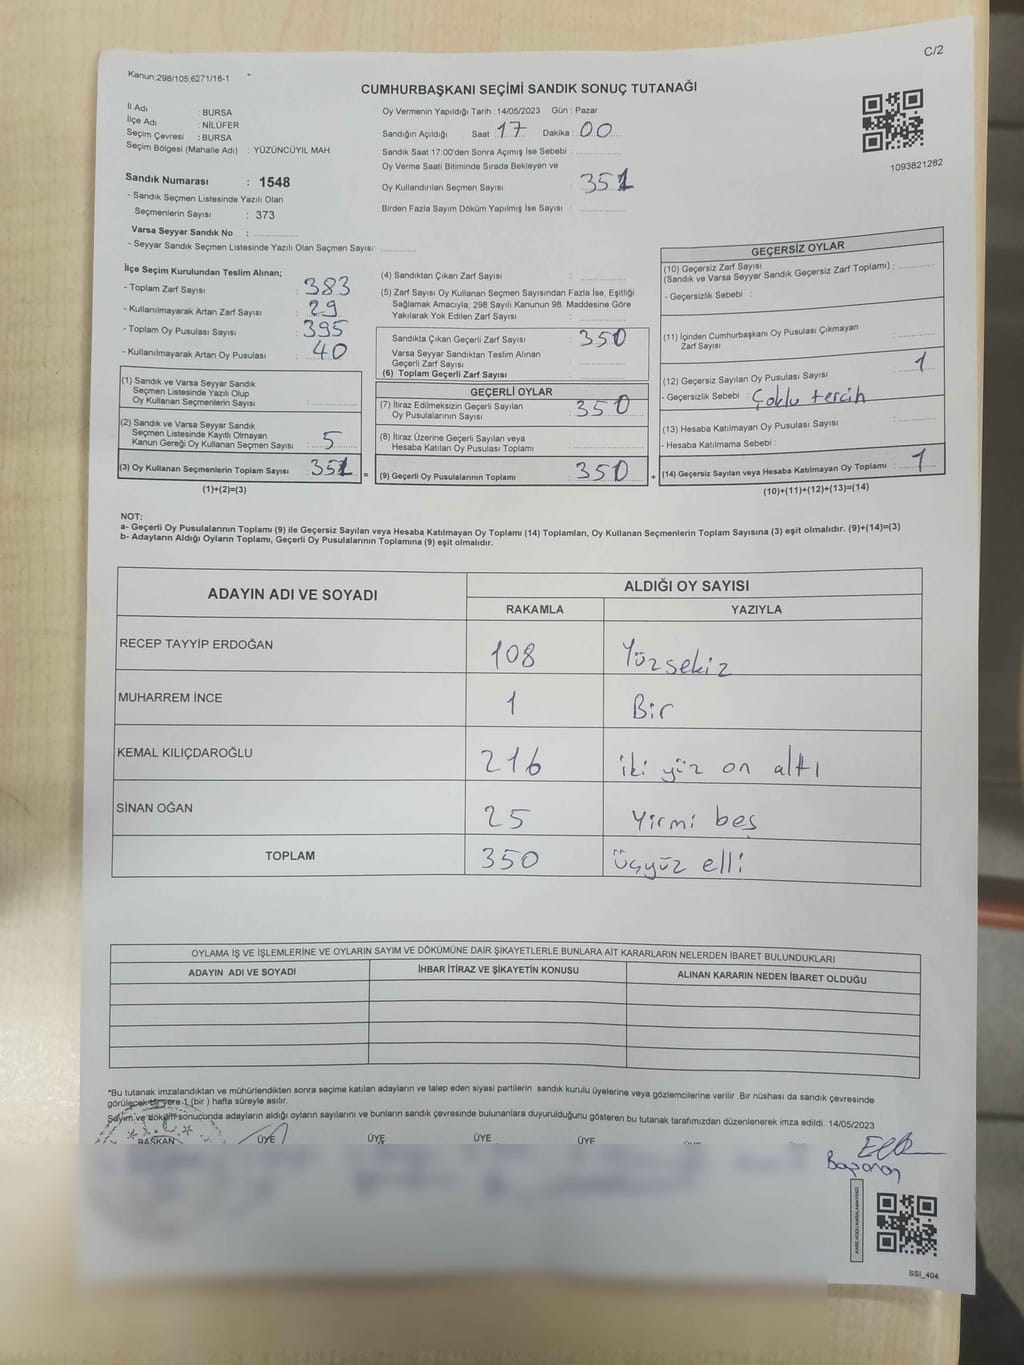 C/2
Kanun;298/105,6271/18-1
CUMHURBAŞKANI SEÇİMİ SANDIK SONUÇ TUTANAĞI
İl Adı : BURSA
İlçe Adı : NİLÜFER
Seçim Çevresi : BURSA
Seçim Bölgesi (Mahalle Adı) : YÜZÜNCÜYIL MAH.
Sandık Numarası : 1548
- Sandık Seçmen Listesinde Yazılı Olan
Seçmenlerin Sayısı : 373
Varsa Seyyar Sandık No :
- Seyyar Sandık Seçmen Listesinde Yazılı Olan Seçmen Sayısı:
Oy Vermenin Yapıldığı Tarih :14/05/2023 Gün : Pazar
Sandığın Açıldığı Saat : 17 Dakika : 00
Sandık Saat 17:00'den Sonra Açımış İse Sebebi :
Oy Verme Saati Bitiminde Sırada Bekleyen ve
Oy Kullandırılan Seçmen Sayısı : 351
Birden Fazla Sayım Döküm Yapılmış İse Sayısı :
1093821282
İlçe Seçim Kurulundan Teslim Alınan;
- Toplam Zarf Sayısı : 383
- Kullanılmayarak Artan Zarf Sayısı : 29
- Toplam Oy Pusulası Sayısı : 395
- Kullanılmayarak Artan Oy Pusulası : 40
(1) Sandık ve Varsa Seyyar Sandık
Seçmen Listesinde Yazılı Olup
Oy Kullanan Seçmenlerin Sayısı :
(2) Sandık ve Varsa Seyyar Sandık
Seçmen Listesinde Kayıtlı Olmayan
Kanun Gereği Oy Kullanan Seçmen Sayısı : 5
(3) Oy Kullanan Seçmenlerin Toplam Sayısı : 351 =
(1)+(2)=(3)
(4) Sandıktan Çıkan Zarf Sayısı :
(5) Zarf Sayısı Oy Kullanan Seçmen Sayısından Fazla İse, Eşitliği
Sağlamak Amacıyla; 298 Sayılı Kanunun 98. Maddesine Göre
Yakılarak Yok Edilen Zarf Sayısı :
Sandıkta Çıkan Geçerli Zarf Sayısı : 350
Varsa Seyyar Sandıktan Teslim Alınan
Geçerli Zarf Sayısı :
(6) Toplam Geçerli Zarf Sayısı :
GEÇERLİ OYLAR
(7) İtiraz Edilmeksizin Geçerli Sayılan
Oy Pusulalarının Sayısı : 350
(8) İtiraz Üzerine Geçerli Sayılan veya
Hesaba Katılan Oy Pusulası Toplamı :
(9) Geçerli Oy Pusulalarının Toplamı : 350 +
GEÇERSİZ OYLAR
(10) Geçersiz Zarf Sayısı
(Sandık ve Varsa Seyyar Sandık Geçersiz Zarf Toplamı) :
- Geçersizlik Sebebi :
(11) İçinden Cumhurbaşkanı Oy Pusulası Çıkmayan
Zarf Sayısı :
(12) Geçersiz Sayılan Oy Pusulası Sayısı : 1
- Geçersizlik Sebebi : Çoklu tercih
(13) Hesaba Katılmayan Oy Pusulası Sayısı :
- Hesaba Katılmama Sebebi :
(14) Geçersiz Sayılan veya Hesaba Katılmayan Oy Toplamı : 1
(10)+(11)+(12)+(13)=(14)
NOT:
a- Geçerli Oy Pusulalarının Toplamı (9) ile Geçersiz Sayılan veya Hesaba Katılmayan Oy Toplamı (14) Toplamları, Oy Kullanan Seçmenlerin Toplam Sayısına (3) eşit olmalıdır. (9)+(14)=(3)
b- Adayların Aldığı Oyların Toplamı, Geçerli Oy Pusulalarının Toplamına (9) eşit olmalıdır.
ADAYIN ADI VE SOYADI ALDIĞI OY SAYISI
RAKAMLA YAZIYLA
RECEP TAYYİP ERDOĞAN 108 Yüzsekiz
MUHARREM İNCE 1 Bir
KEMAL KILIÇDAROĞLU 216 iki yüz on altı
SİNAN OĞAN 25 Yirmi beş
TOPLAM 350 üçyüz elli
OYLAMA İŞ VE İŞLEMLERİNE VE OYLARIN SAYIM VE DÖKÜMÜNE DAİR ŞİKAYETLERLE BUNLARA AİT KARARLARIN NELERDEN İBARET BULUNDUKLARI
ADAYIN ADI VE SOYADI İHBAR İTİRAZ VE ŞİKAYETİN KONUSU ALINAN KARARIN NEDEN İBARET OLDUĞU
*Bu tutanak imzalandıktan ve mühürlendikten sonra seçime katılan adayların ve talep eden siyasi partilerin sandık kurulu üyelerine veya gözlemcilerine verilir. Bir nüshası da sandık çevresinde
görülecek bir yere 1 (bir ) hafta süreyle asılır.
Sayım ve döküm sonucunda adayların aldığı oyların sayılarını ve bunların sandık çevresinde bulunanlara duyurulduğunu gösteren bu tutanak tarafımızdan düzenlenerek imza edildi. 14/05/2023
BAŞKAN ÜYE ÜYE ÜYE ÜYE
SSI_404